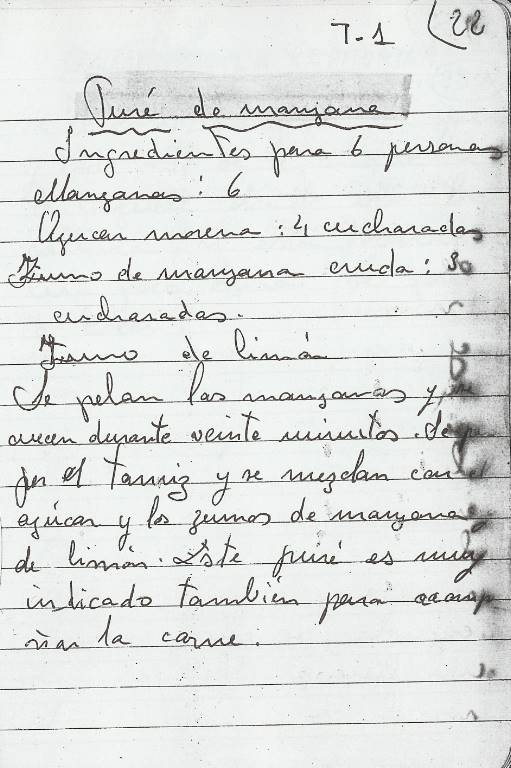 T-1 (22
Puré de manzana
Ingredientes para 6 personas
Manzanas: 6
Azucar morena: 4 cucharadas
Zumo de manzana cruda:
cucharadas.
Zumo de limón
Se pelan las manzanas y se
cuecen durante veinte minutos.
por el tamiz y se mezclan con el
azúcar y los zumos de manzana y
de limón. Este puré es muy
indicado también para acomp
ñar la carne.